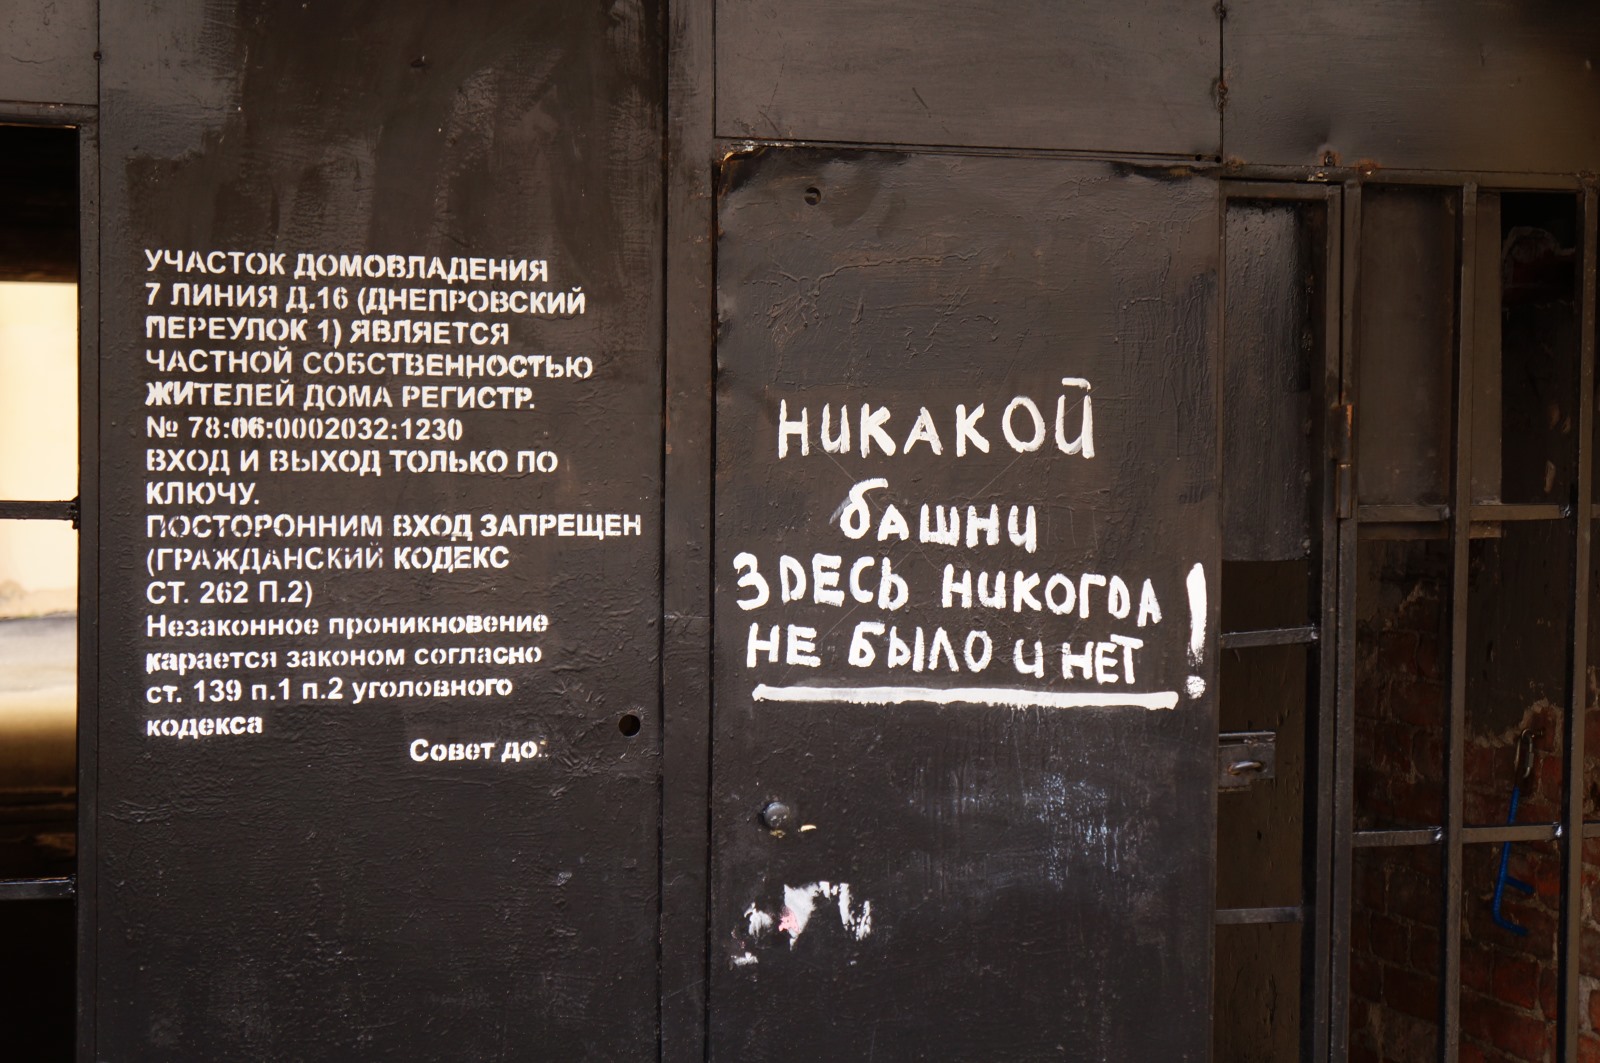 УЧАСТОК ДОМОВЛАДЕНИЯ
7 ЛИНИЯ Д.16 (ДНЕПРОВСКИЙ
ПЕРЕУЛОК 1) ЯВЛЯЕТСЯ
ЧАСТНОЙ СОБСТВЕННОСТЬЮ
ЖИТЕЛЕЙ ДОМА РЕГИСТР.
№ 78:06:0002032:1230
ВХОД И ВЫХОД ТОЛЬКО ПО
КЛЮЧУ.
ПОСТОРОННИМ ВХОД ЗАПРЕЩЕН
(ГРАЖДАНСКИЙ КОДЕКС
СТ. 262 П.2)
Незаконное проникновение
карается законом согласно
ст. 139 п.1 п.2 уголовного
кодекса
Совет до
НИКАКОЙ
башни
ЗДЕСЬ НИКОГДА
НЕ БЫЛО и НЕТ!